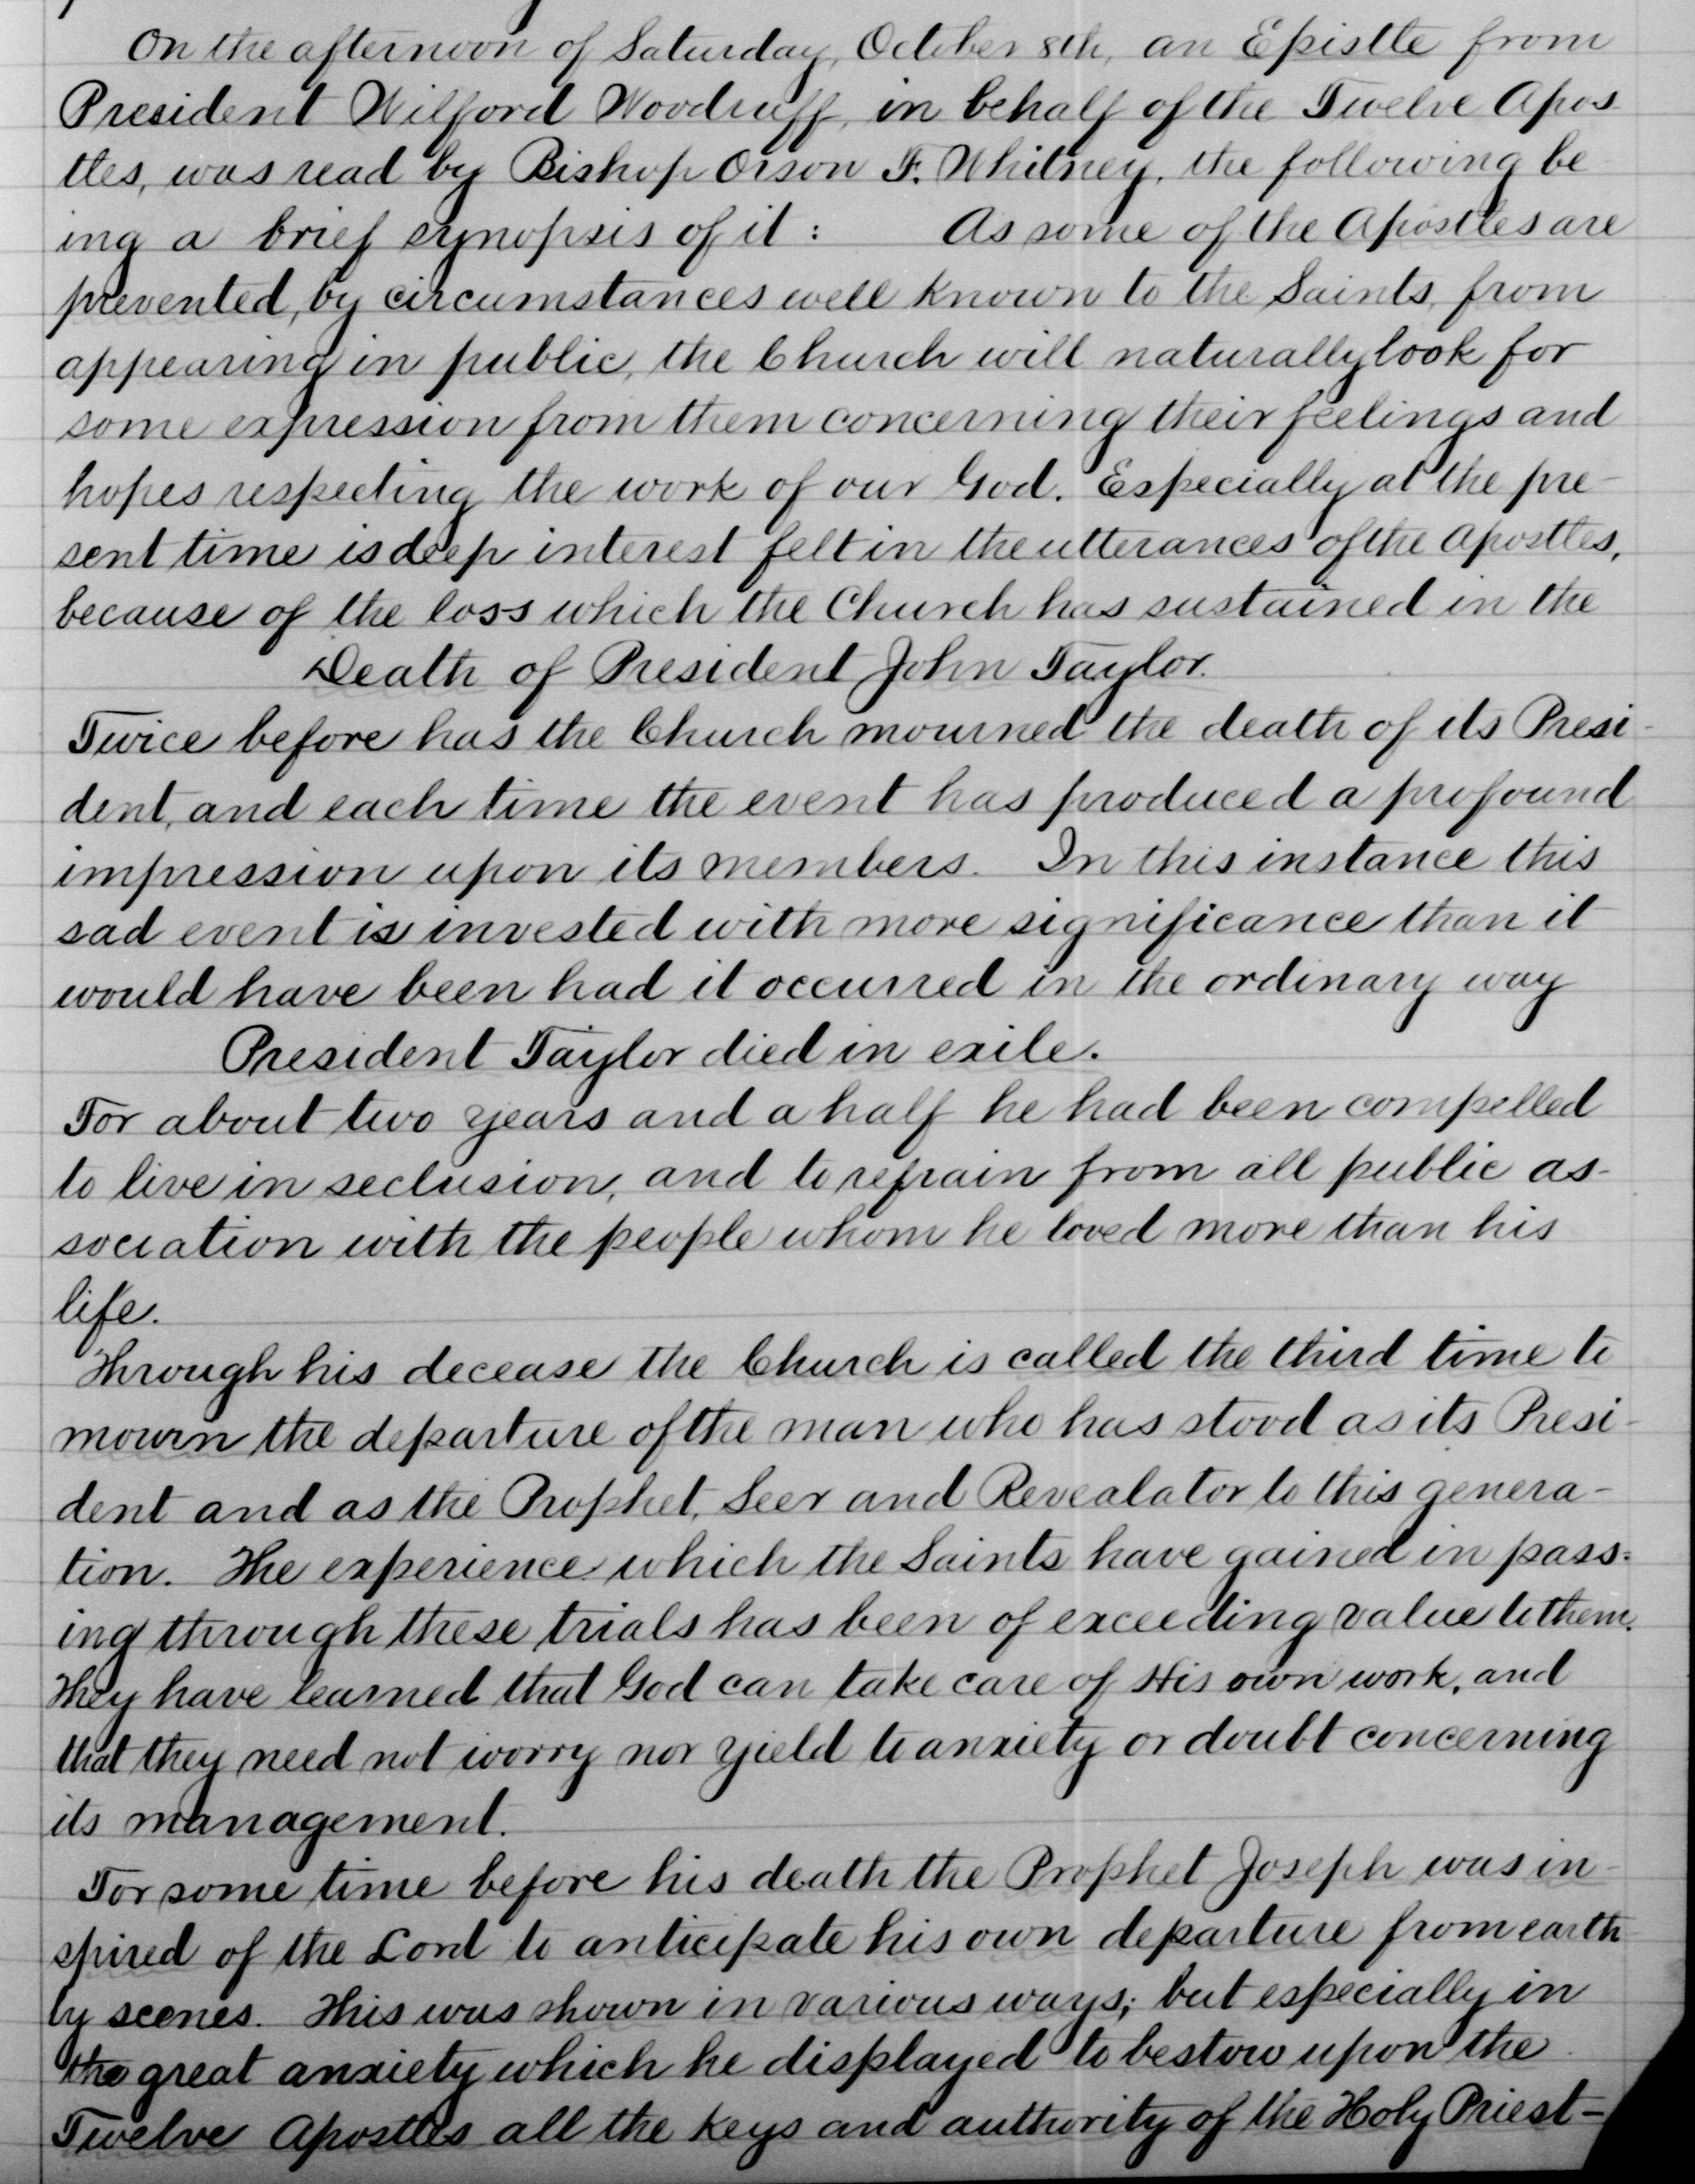 On the afternoon of Saturday, October 8th, an Epistle from
President Wilford Woodruff, in behalf of the Twelve Apos
tles, was read by Bishop Orson F. Whitney, the following be
ing a brief synopsis of it : As some of the Apostles are
prevented, by circumstances well known to the Saints, from
appearing in public, the Church will naturally look for
some expression from them concerning their feelings and
hopes respecting the work of our God. Especially at the pre-
sent time is deep interest felt in the utterances of the Apostles,
because of the loss which the Church has sustained in the
Death of President John Taylor.
Twice before has the Church mourned the death of its Presi-
dent, and each time the event has produced a profound
impression upon its members. In this instance this
sad event is invested with more significance than it
would have been had it occurred in the ordinary way
President Taylor died in exile.
For about two years and a half he had been compelled
to live in seclusion, and to refrain from all public as-
sociation with the people whom he loved more than his
life.
Through his decease the Church is called the third time to
mourn the departure of the man who has stood as its Presi-
dent and as the Prophet, Seer and Revealator to this genera-
tion. The experience which the Saints have gained in pass-
ing through these trials has been of exceeding value to them.
They have learned that God can take care of His own work, and
that they need not worry nor yield to anxiety or doubt concerning
its management.
For some time before his death the Prophet Joseph was in-
spired of the Lord to anticipate his own departure from earth
ly scenes. This was shown in various ways; but especially in
the great anxiety which he displayed to bestow upon the
Twelve Apostles all the keys and authority of the Holy Priest-